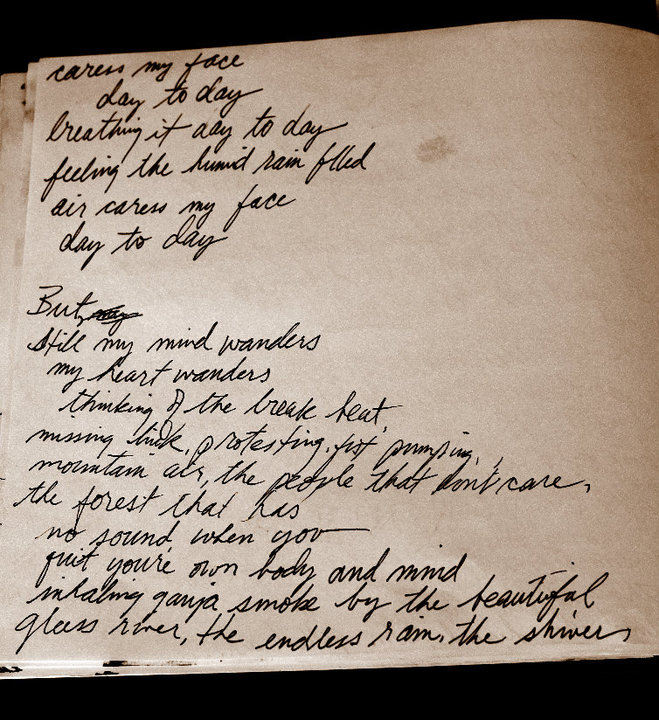 caress my face
day to day
breathing it day to day
feeling the humid rain filled
air caress my face
day to day
But,
still my mind wanders
my heart wanders
thinking of the break beat,
missing link, protesting, fist pumping,
mountain air, the people that don't care,
the forest that has
no sound when you
quit you're own body and mind
inhaling ganja smoke by the beautiful
glass river, the endless rain, the shiver,